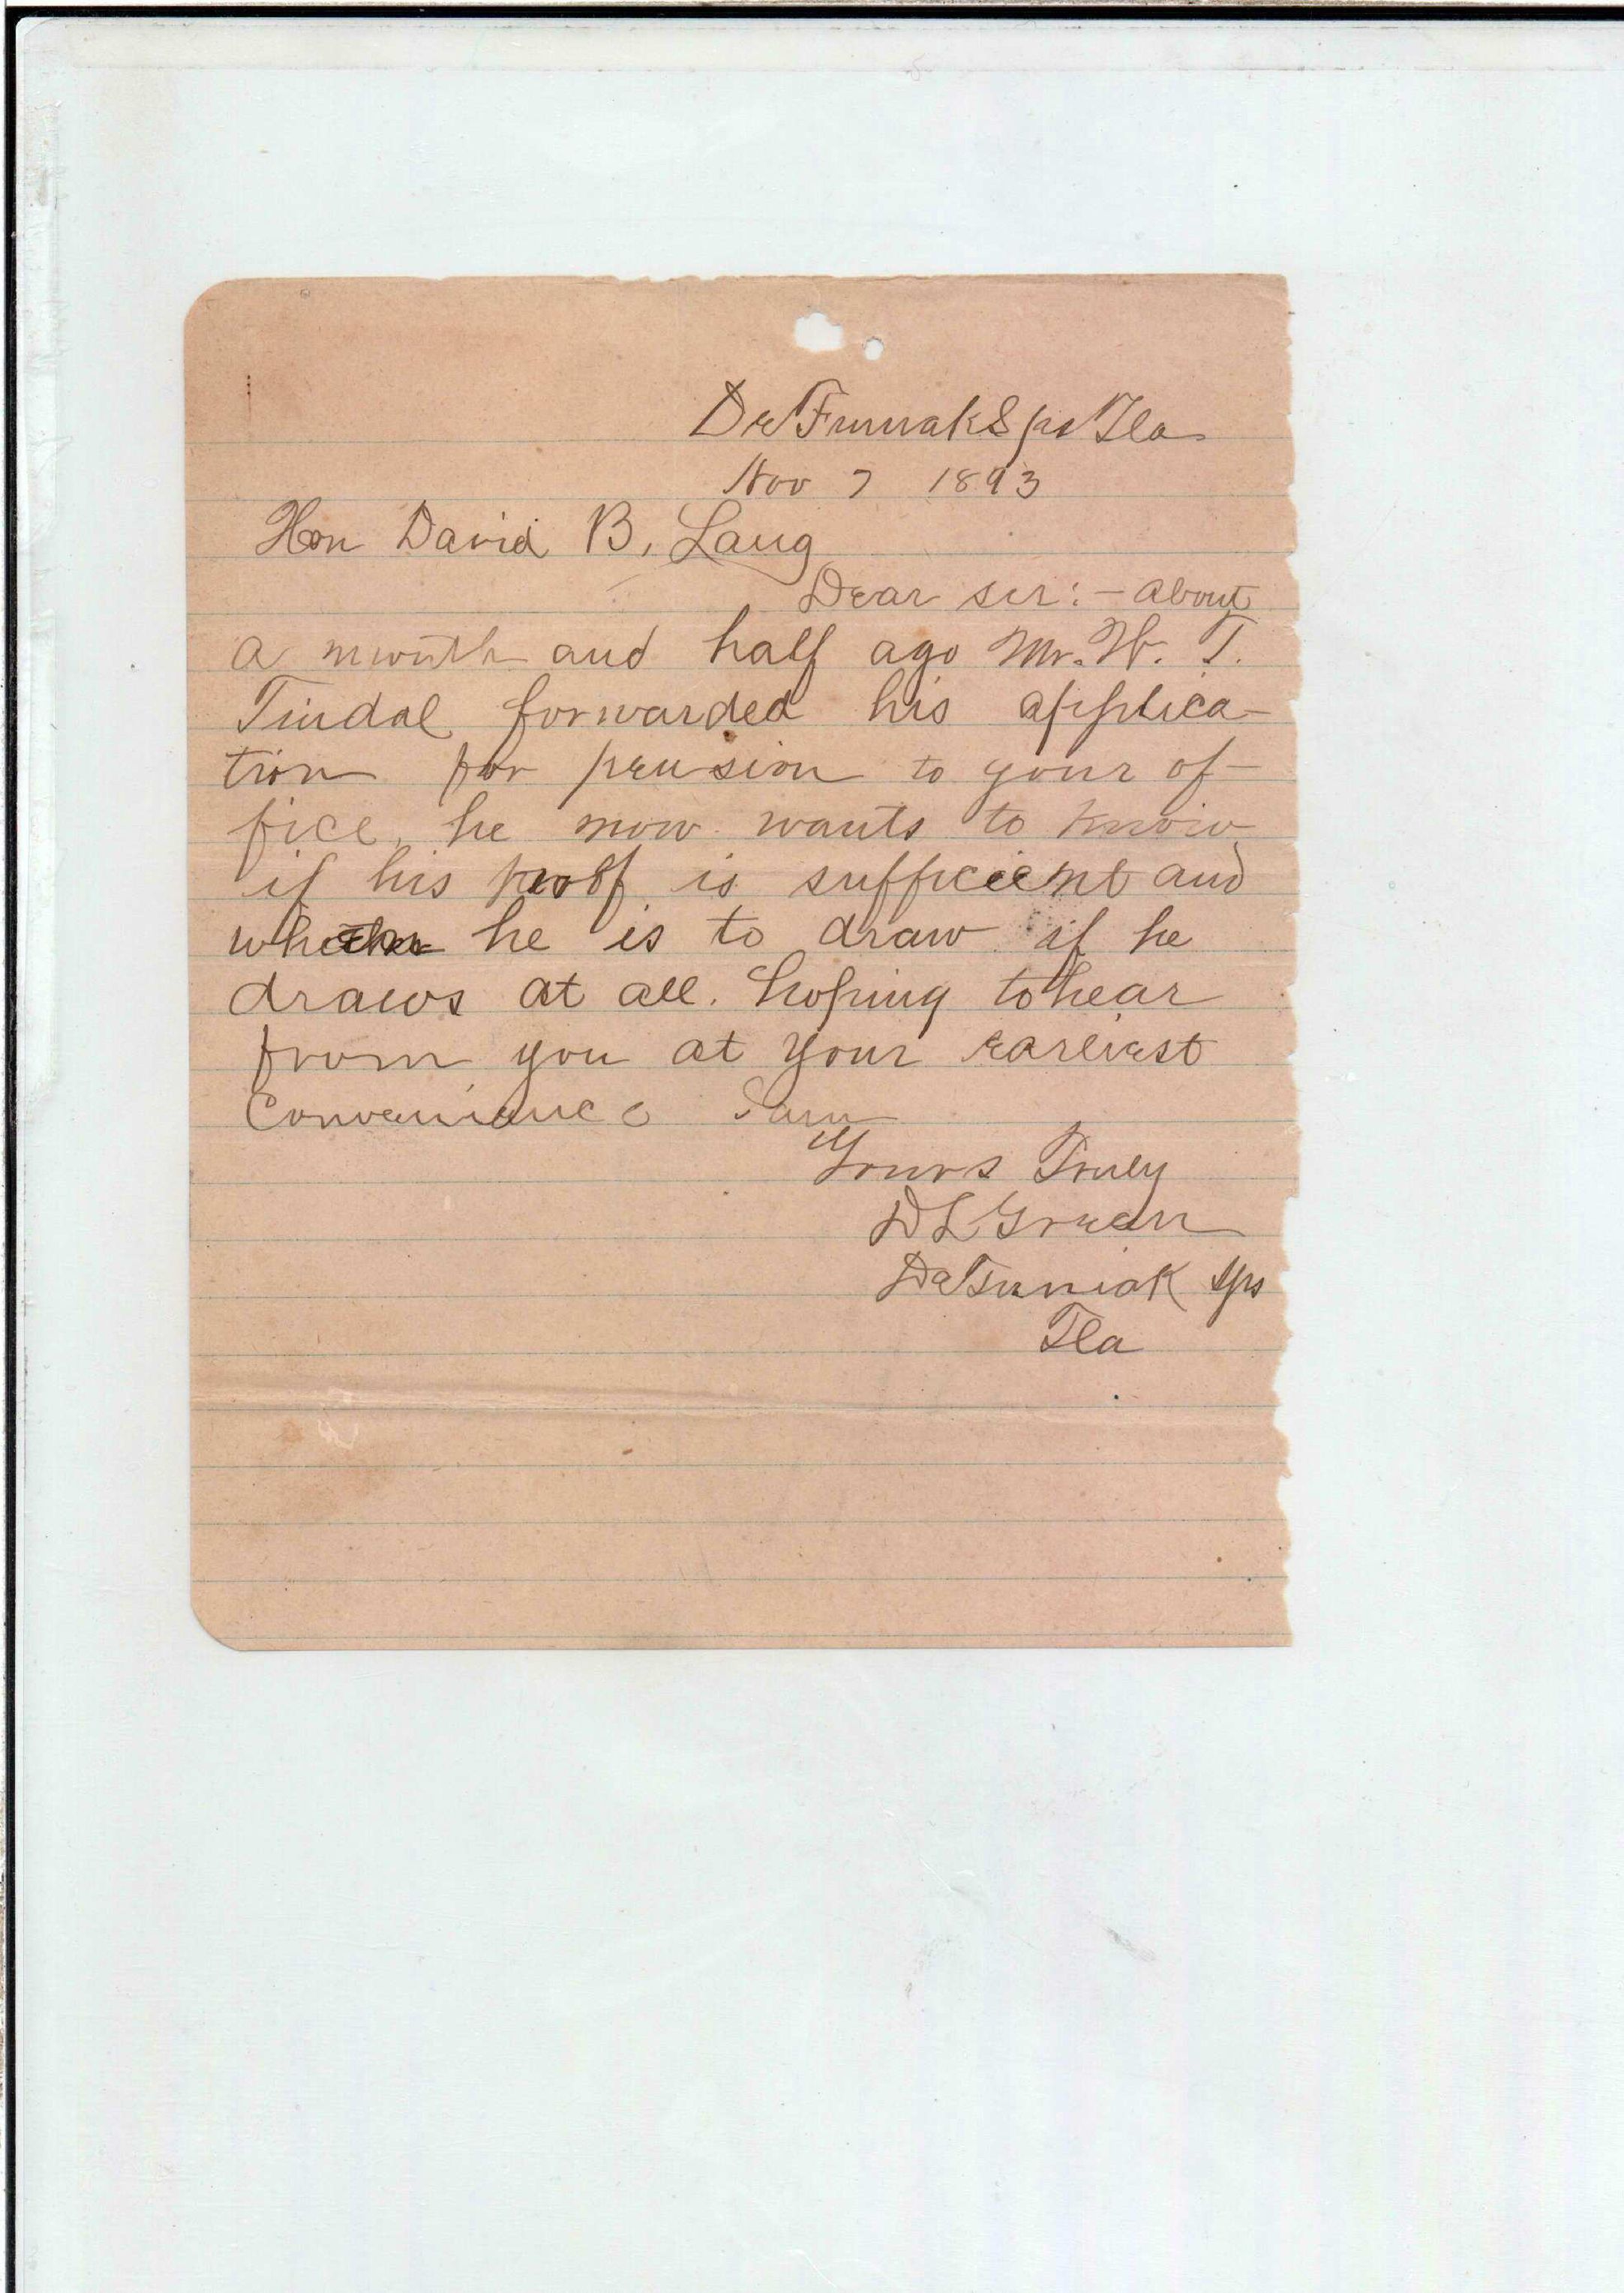 DeFuniak Sps Fla
Nov 7 1893
Hon David B. Lang
Dear sir:- About
a month and half ago Mr. W. T.
Tindal forwarded his applica-
tion for pension to your of-
fice, he now wants to know
if his proof is sufficient and
he is to draw if he
draws at all. hoping to hear
from you at your earliest
Convenience I am
Yours Truly
D L Green
DeFuniak Sps
Fla